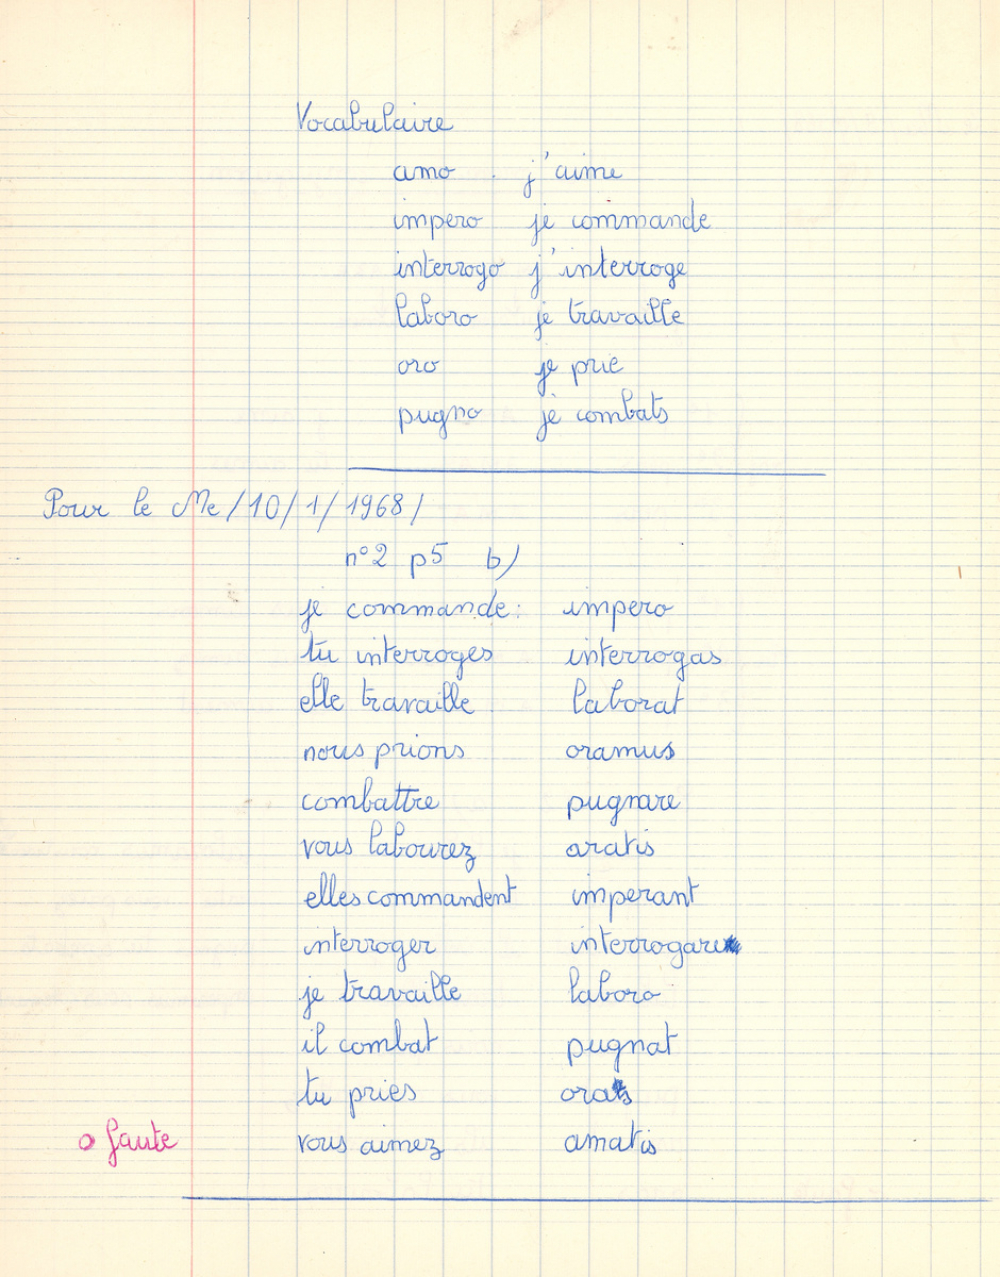 Vocabulaire
amo j'aime
impero je commande
interrogo j'interroge
laboro je travaille
oro je prie
pugno je combats
Pour le Me/10/1/1968/
n°2 p5 b)
je commande: impero
tu interroges interrogas
elle travaille laborat
nous prions oramus
combattre pugnare
vous labourez aratis
elles commandent imperant
interroger interrogare
je travaille laboro
il combat pugnat
tu pries oras
0 faute vous aimez amatis